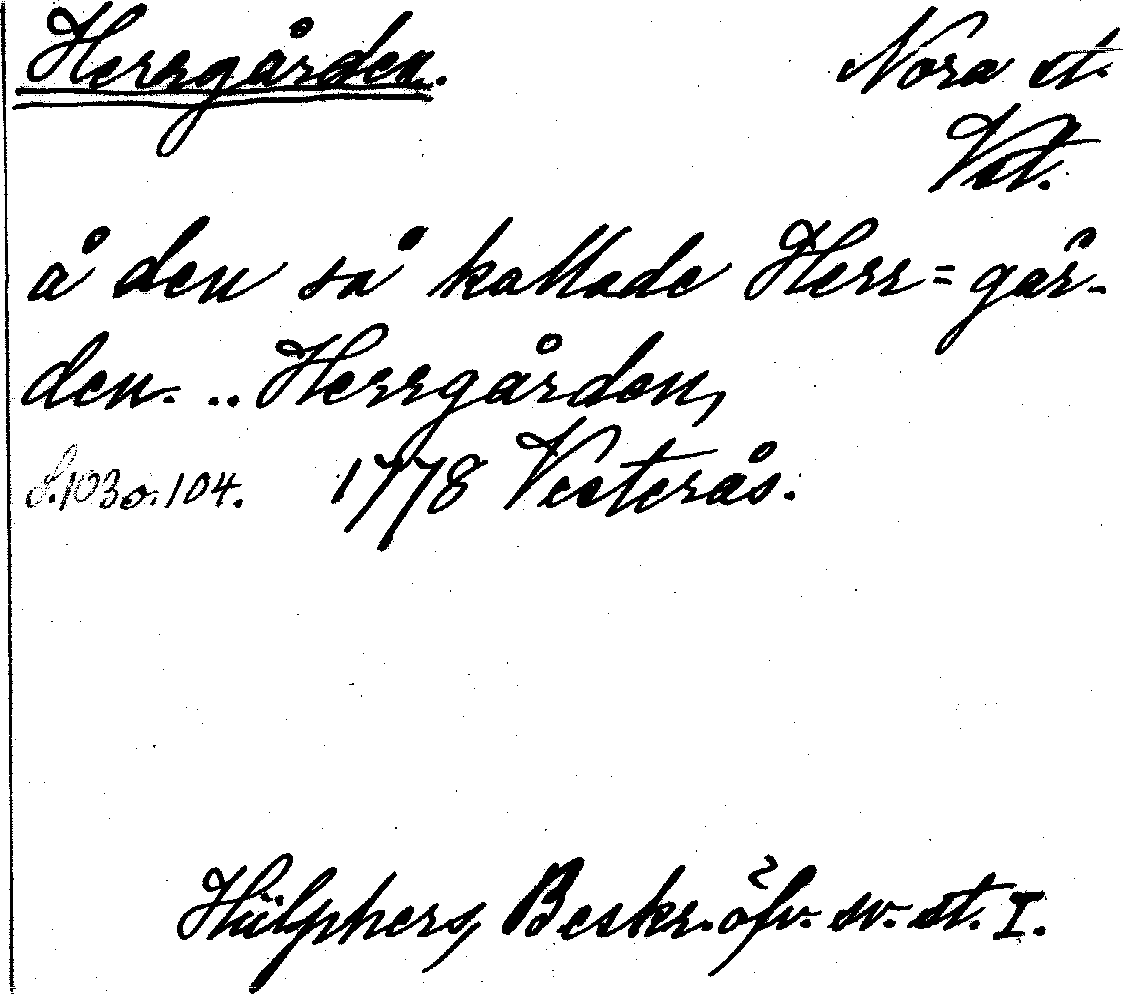 Herrgården.
Nora st.
Vst.
å den så kallade Herr=går-
den. .. Herrgården,
S. 103 o. 104. 1778 Vesterås.
Hülphers, Beskr. öfv. sv. st. I.